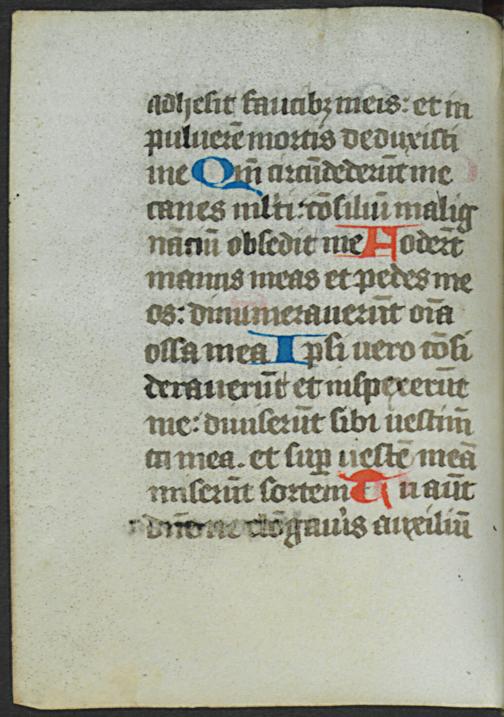 adhesit faucibꝫ meis: et in
puluerē mortis deduxisti
me Qm̄ circūdederūt me
canes ml̄ti: cōsiliū malig
nātiū obsedit me Foderūt
manus meas et pedes me
os: dinumerauerūt oīa
ossa mea Ipsi uero cōsi
derauerūt et inspexerūt
me: diuiserūt sibi uestim̄
ta mea. et sup̄ uestē meā
miserūt sortem Tu aūt
dn̄e ne elōgaueris auxiliū